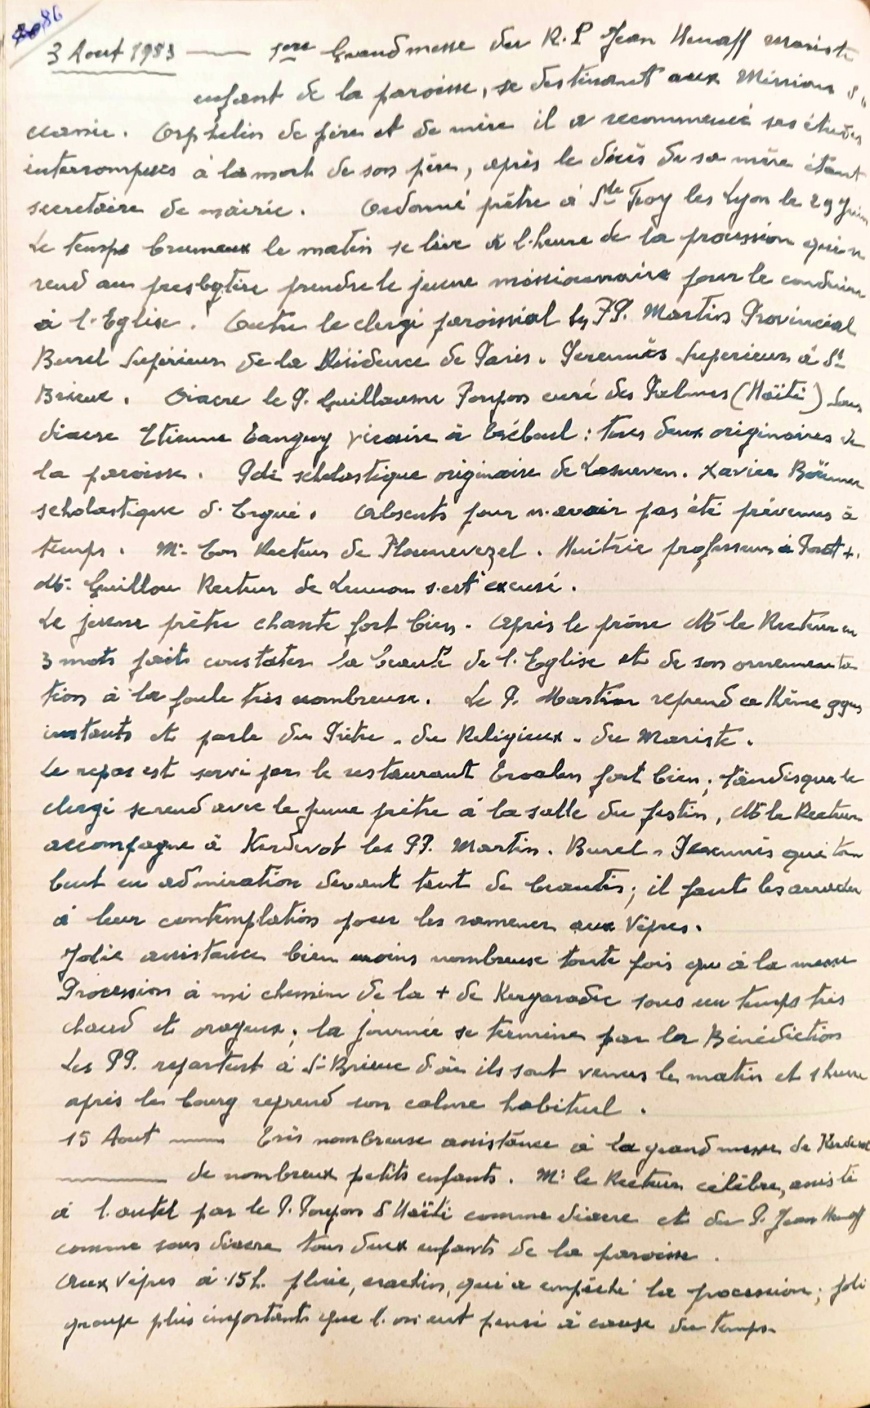 86
3 Aout 1953 —— 1ere Grand messe du R.P Jean Henaff mariste
enfant de la paroisse, se destinant aux Missions d'O
ceanie. Orphelin de père et de mère il a recommencé ses études
interrompues à la mort de son père, après le décès de sa mère étant
secretaire de mairie. Ordonné prêtre à Ste Foy les Lyon le 29 Juin
Le temps brumeux le matin se lève à l'heure de la procession qui se
rend au presbytère prendre le jeune missionnaire pour le conduire
à l'Eglise. Outre le clergé paroissial les PP. Martin Provincial
Burel Supérieur de la Résidence de Paris. Perennès Superieur à St
Brieuc. Diacre le P. Guillaume Poupon curé des Palmes (Haïti) Sous
diacre Etienne Tanguy vicaire à Tréboul : tous deux originaires de
la paroisse. scholastique originaire de Lesneven. Xavier
scholastique d'Ergué. Absents pour n'avoir pas été prévenus à
temps. Mr Recteur de Plounevezel. professeur à Pont +.
Mr Guillou Recteur de s'est excusé.
Le jeune prêtre chante fort bien. Après le prône Mr le Recteur en
3 mots fait constater la beauté de l'Eglise et de son ornementa
tion à la foule très nombreuse. Le P. Martin reprend ce thème qques
instants et parle du Prêtre - du Religieux - du Mariste.
Le repas est servi par le restaurant fort bien; tandis que le
clergé se rend avec le jeune prêtre à la salle du festin, Mr le Recteur
accompagne à Kerdevot les PP. Martin - Burel - Perennès qui tom
bent en admiration devant tant de beautés; il faut les arracher
à leur contemplation pour les ramener aux Vêpres.
Jolie assistance bien moins nombreuse toute fois qu'à la messe
Procession à mi chemin de la + de Kergaradec sous un temps très
chaud et orageux; la journée se termine par la Bénédiction
Les PP. repartent à St Brieuc d'où ils sont venus le matin et 1 heure
après le bourg reprend son calme habituel.
15 Aout —— Très nombreuse assistance à la grand messe de Kerdevot
—— de nombreux petits enfants. Mr le Recteur célèbre, assisté
à l'autel par le P. Poupon d'Haïti comme diacre et du P. Jean Henaff
comme sous diacre tous deux enfants de la paroisse.
Aux Vêpres à 15h. pluie, crachin, qui a empêché la procession; joli
groupe plus important que l'on eut pensé à cause du temps.